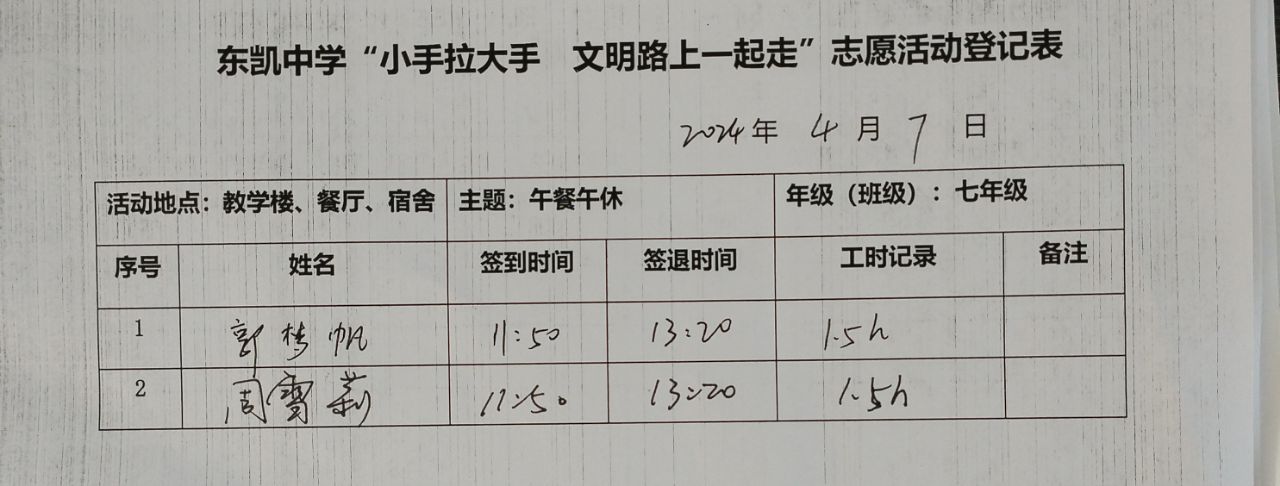 东凯中学“小手拉大手 文明路上一起走”志愿活动登记表
2024年 4 月 7 日
活动地点：教学楼、餐厅、宿舍 主题：午餐午休 年级（班级）：七年级
序号 姓名 签到时间 签退时间 工时记录 备注
1 郭梦帆 11:50 13:20 1.5h
2 周雪莉 11:50 13:20 1.5h